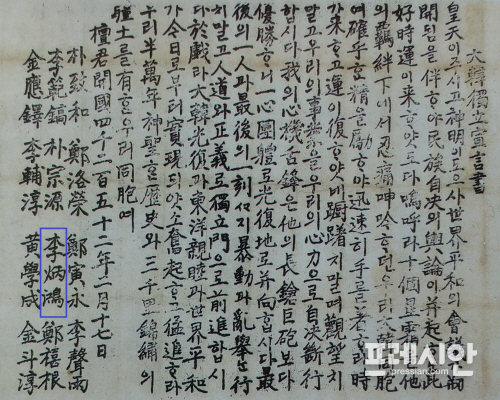 大韓獨立宣言書
皇天이 주시고 神明이 도으사 世界平和의 會議
開됨을 伴ᄒᆞ야 民族自決의 輿論이 并起ᄒᆞ니 此
好時運이 来ᄒᆞ얏도다 嗚呼라 十個星霜 他
의 羈絆下에서 忍痛呻吟ᄒᆞ던 우리 大韓同胞
여 確乎ᄒᆞᆫ 精을 勵ᄒᆞ야 迅速히 手를 着ᄒᆞ라 時
가 来ᄒᆞ고 運이 復ᄒᆞ얏네 躊躇치 말며 觀望치
말고 우리의 事業을 우리의 心力으로 自決斷行
합시다 我의 心機舌鋒은 他의 長鎗巨砲보다
優勝ᄒᆞ니 一心團體로 光復地로 并向ᄒᆞᆸ시다 最
後의 一人과 最後의 一刻ᄭᅡ지 暴動과 乱擧는 行
치말고 人道와 正義로 獨立門으로 前進합시
다 於戱라 大韓光復과 東洋親睦과 世界平和
가 今日로부터 實現되얏소 奮起ᄒᆞ고 猛進ᄒᆞ라
우리 半萬年神聖ᄒᆞᆫ 歷史와 三千里錦繡의
疆土를 有ᄒᆞᆫ 우리 同胞여
檀君開國四千二百五十二年一月十七日
朴致和 鄭洛榮 鄭寅永 李聲雨
李範鎬 朴宗源 李炳鴻 鄭禧根
金應鐸 李輔淳 黃學成 金斗淳
프레시안
pressian.com